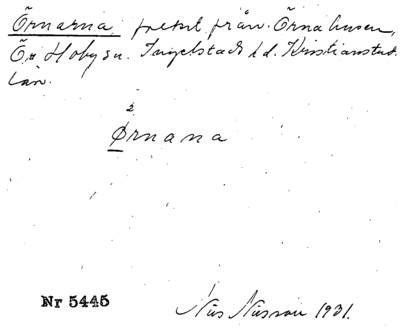 Örnarna, folket från Örnahusen,
Ö. Hoby sn. Ingelstads hd. Kristianstads
län.
2
Ørnana
Nr 5445
Nils Nilsson 1931.